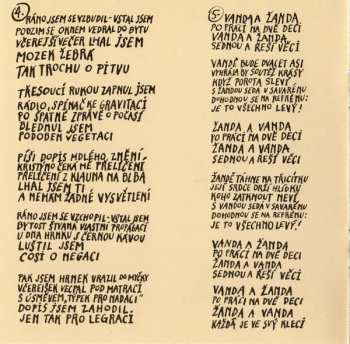 4.
RÁNO JSEM SE VZBUDIL - VSTAL JSEM
PODZIM SE OKNEM VEDRAL DO BYTU
VČEREJŠÍ VEČER LHAL JSEM
MOZEK ŽEBRÁ
TAK TROCHU O PITVU
TŘESOUCÍ RUKOU ZAPNUL JSEM
RÁDIO, SPÍNAČ KE GRAVITACI
PO ŠPATNÉ ZPRÁVĚ O POČASÍ
BLEDNUL JSEM
PODOBEN VEGETACI
PÍŠI DOPIS MDLÉHO ZNĚNÍ
KRISTÝNO ČEKÁ MĚ PŘELÍČENÍ
PŘELÍČENÍ Z KLAUNA NA BLBA
LHAL JSEM TI
A NEMÁM ŽÁDNÉ VYSVĚTLENÍ
RÁNO JSEM SE VZCHOPIL - VSTAL JSEM
BYTOST ŠTVANÁ VLASTNÍ PROPAGACÍ
U DNA HRNKU S ČERNOU KÁVOU
LUŠTIL JSEM
COSI O NEGACI
TAK JSEM HRNEK VRAZIL DO MYČKY
VČEREJŠEK VECPAL POD MATRACI
S ÚSMĚVEM, "TÝPEK PRO NADACI"
DOPIS JSEM ZAHODIL
JEN TAK PRO LEGRACI
5.
VANDA A ŽANDA
PO PRÁCI NA DVĚ DECI
VANDA A ŽANDA
SEDNOU A ŘEŠÍ VĚCI
VANDĚ BUDE DVACET ASI
VYHRÁLA BY SOUTĚŽ KRÁSY
KDYŽ POROTA SLEVÍ
S ŽANDOU SEDÁ V SAVARÉNU
DOHODNOU SE NA REFRÉNU:
JE TO VŠECHNO LEVÝ!
ŽANDA A VANDA
PO PRÁCI NA DVĚ DECI
ŽANDA A VANDA
SEDNOU A ŘEŠÍ VĚCI
ŽANDĚ TÁHNE NA TŘICÍTKU
JEJÍ SRDCE DRŽÍ HLÍDKU
KOHO ZATKNOUT NEVÍ
S VANDOU SEDÁ V SAVARÉNU
DOHODNOU SE NA REFRÉNU:
JE TO VŠECHNO LEVÝ!
VANDA A ŽANDA
PO PRÁCI NA DVĚ DECI
ŽANDA A VANDA
SEDNOU A ŘEŠÍ VĚCI
VANDA A ŽANDA
PO PRÁCI NA DVĚ DECI
ŽANDA A VANDA
KAŽDÁ JE VE SVÝ KLECI